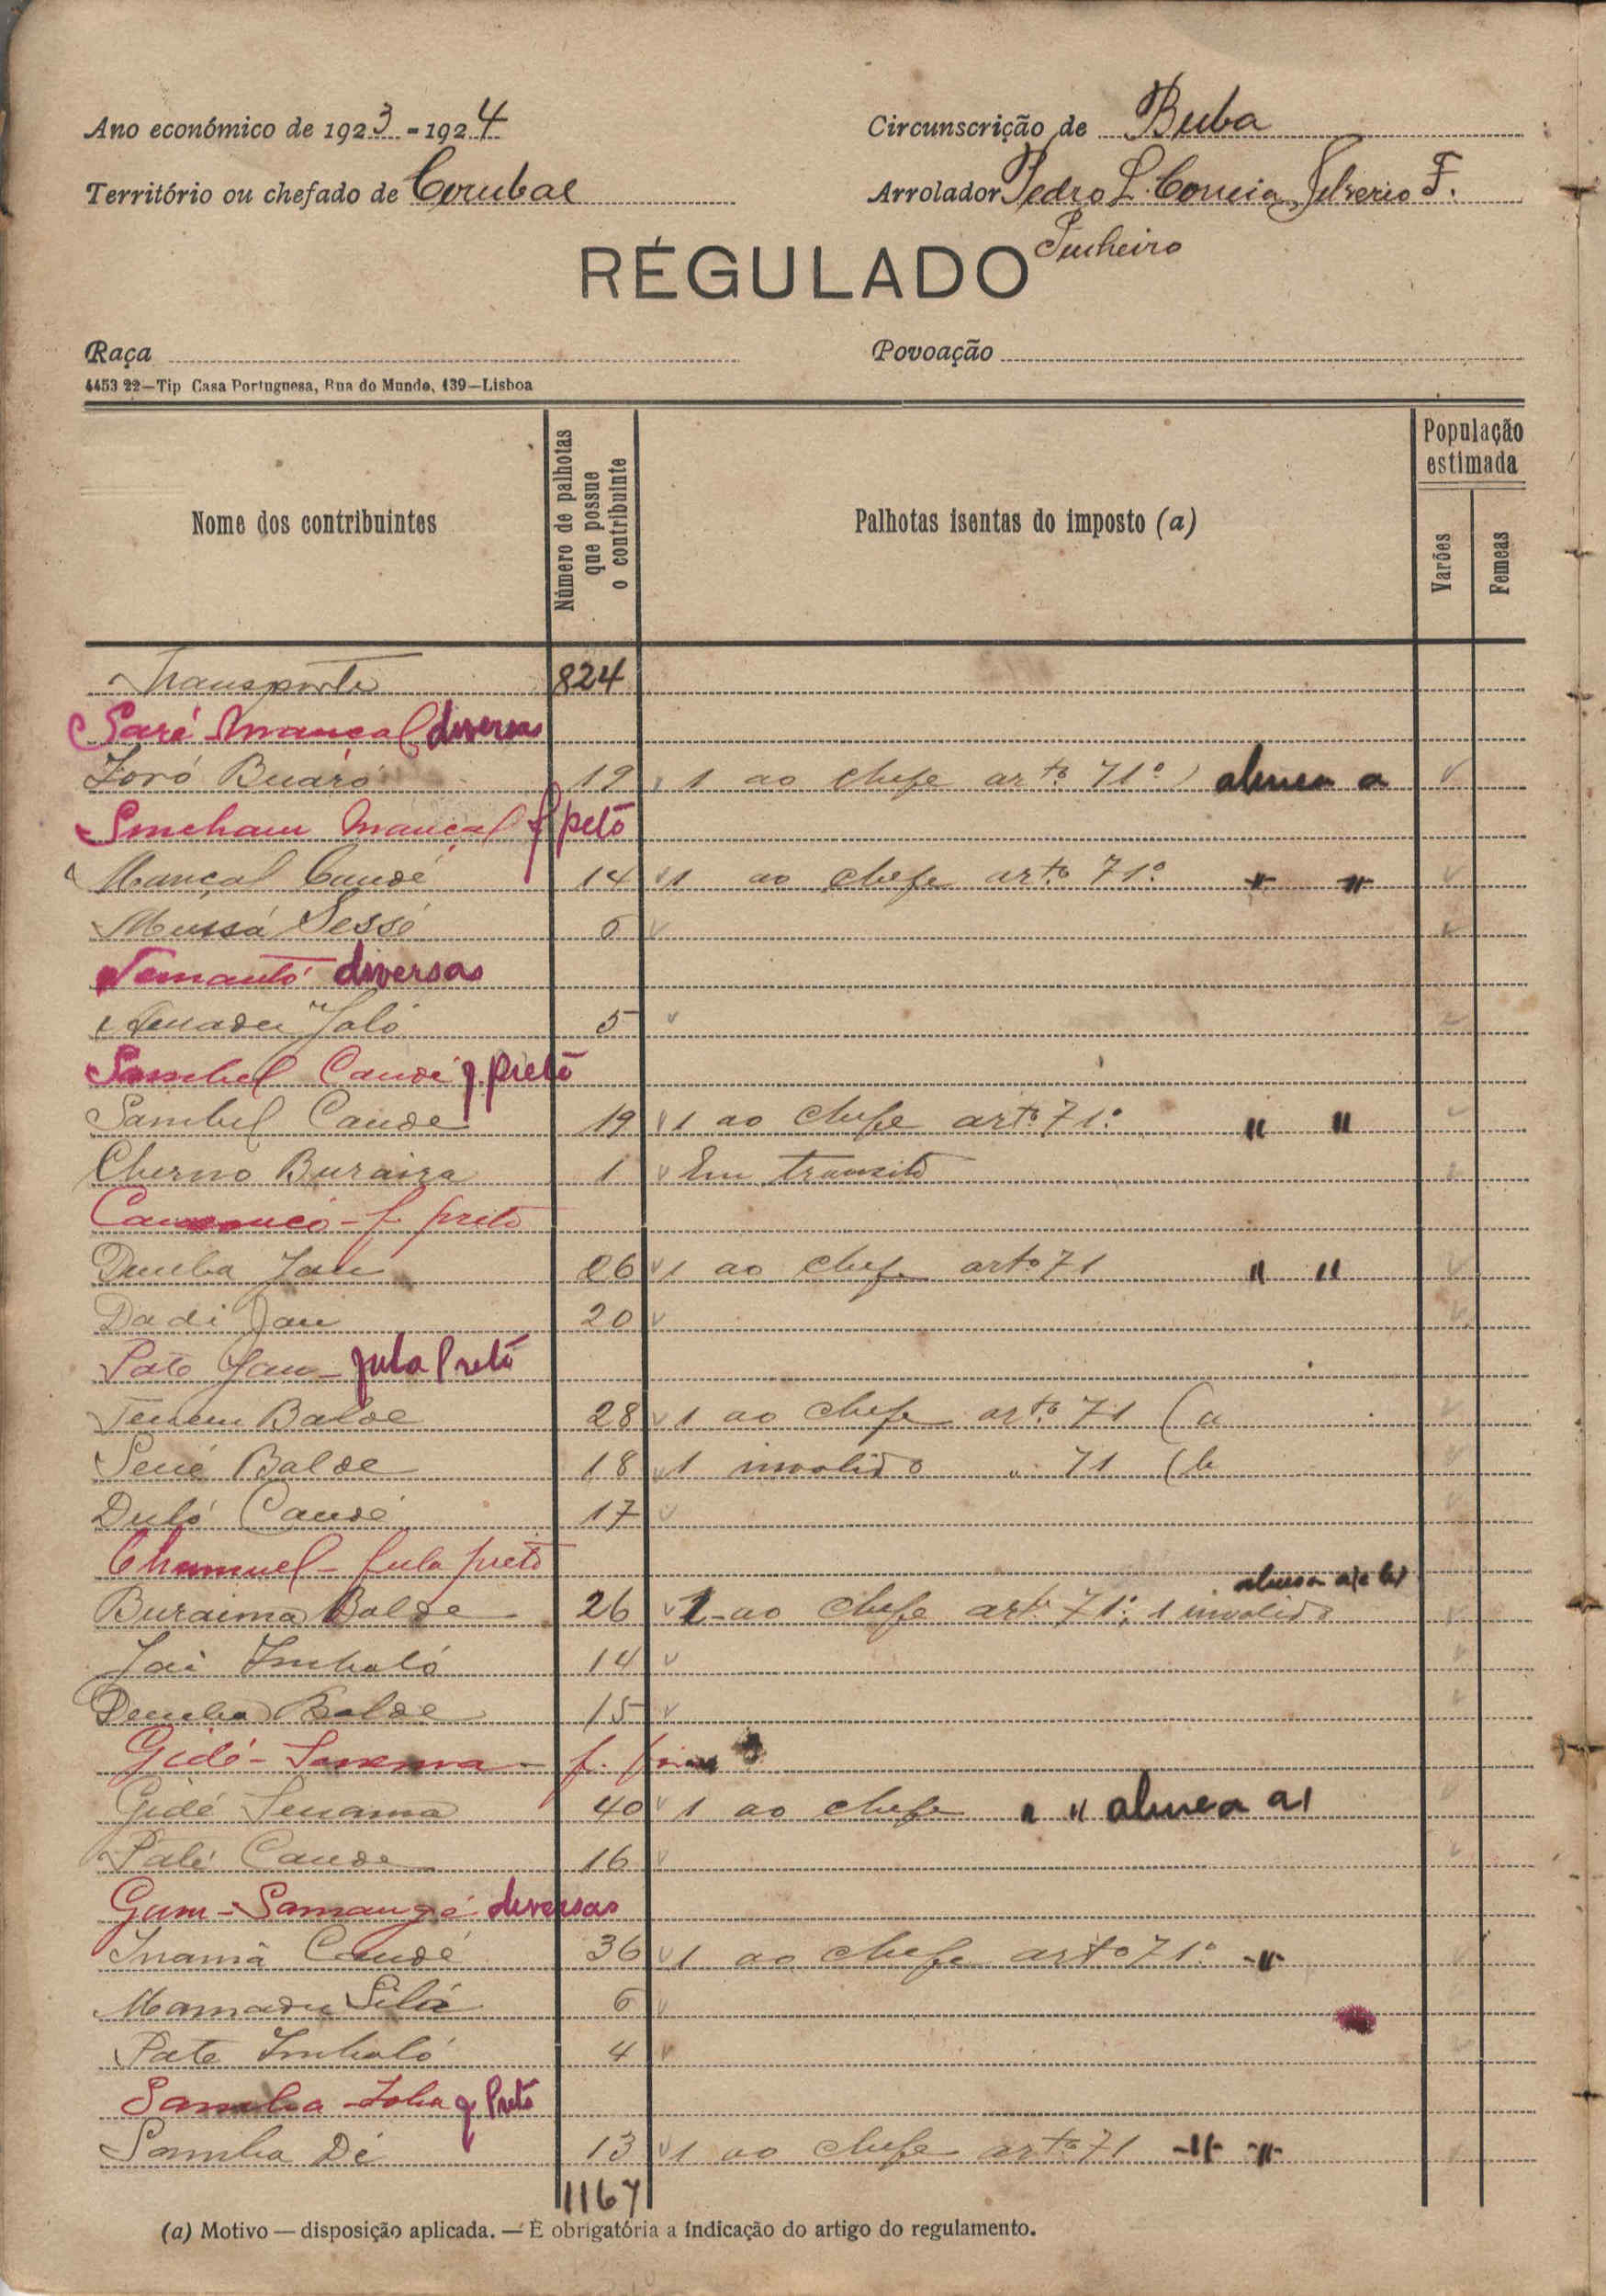 Ano económico de 1923 - 1924
Circunscrição de Buba
Território ou chefado de Corubal
Arrolador Pedro L. Correia, Silverio F. Pinheiro
RÉGULADO
Raça
Povoação
4453 22—Tip Casa Portuguesa, Rua do Mundo, 139—Lisboa
Nome dos contribuintes
Número de palhotas que possue o contribuinte
Palhotas isentas do imposto (a)
População estimada
Varões
Femeas
Transporte 824
Saré Mançal diversas
Joró Buaró 19 1 ao chefe arto 71º) alinea a
Sincham Mançal f. peto
Mançal Candé 14 1 ao chefe arto 71º " "
Mussá Sessé 6
diversas
Amadu Jaló 5
Sambel Candé f. preto
Sambel Cande 19 1 ao chefe arto 71º " "
Cherno Buraira 1 Em transito
f. preto
Demba Jau 26 1 ao chefe arto 71 " "
Dadi Jau 20
Pate Jau - fula Preto
Balde 28 1 ao chefe arto 71 (a
Balde 18 1 invalido " 71 (b
Duló Candé 17
Chamuel - fula preto
Buraima Balde 26 1 ao chefe arto 71º, 1 invalido alinea a) e b)
Jai Imbaló 14
Demba Balde 15
Gidé - Senama - f.
Gidé Senama 40 1 ao chefe " " alinea a)
Paté Cande 16
Gam - Samangé diversas
Inamá Candé 36 1 ao chefe arto 71º "
Mamadu Silá 6
Pate Imbaló 4
Samba f. Preto
Samba Dé 13 1 ao chefe arto 71 " "
1167
(a) Motivo — disposição aplicada. — É obrigatória a indicação do artigo do regulamento.